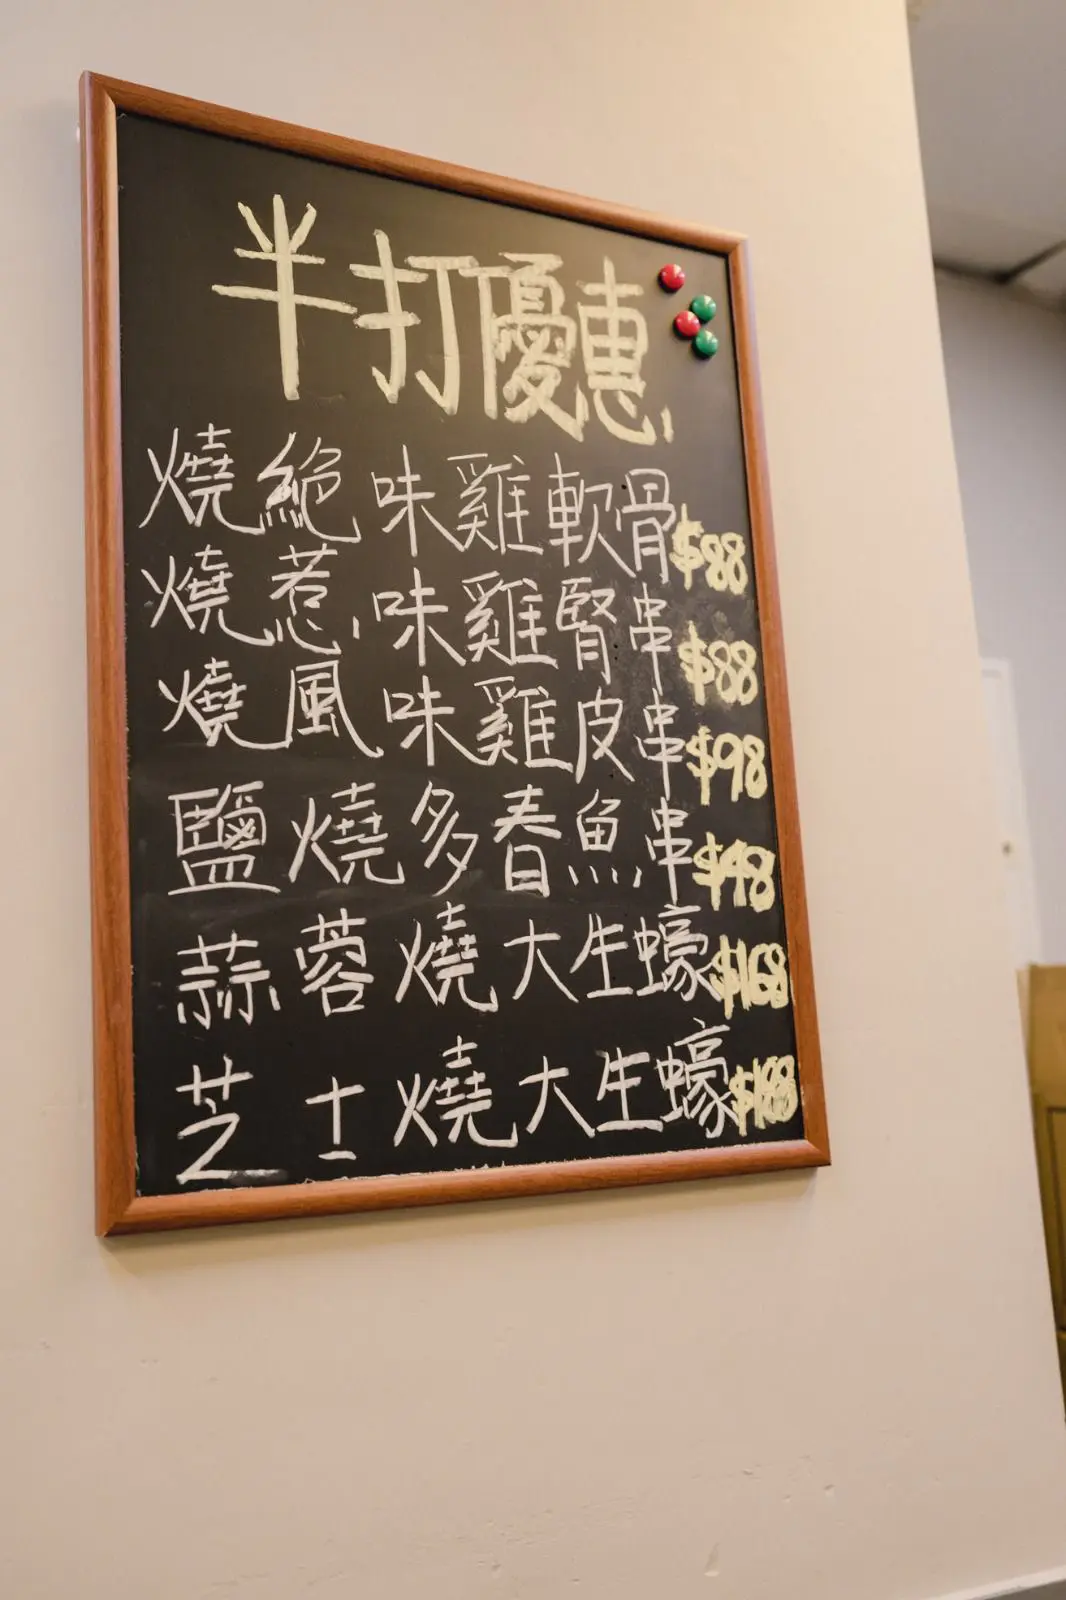 半打優惠
燒絕味雞軟骨 $88
燒惹味雞腎串 $88
燒風味雞皮串 $98
鹽燒多春魚串 $48
蒜蓉燒大生蠔 $168
芝士燒大生蠔 $188